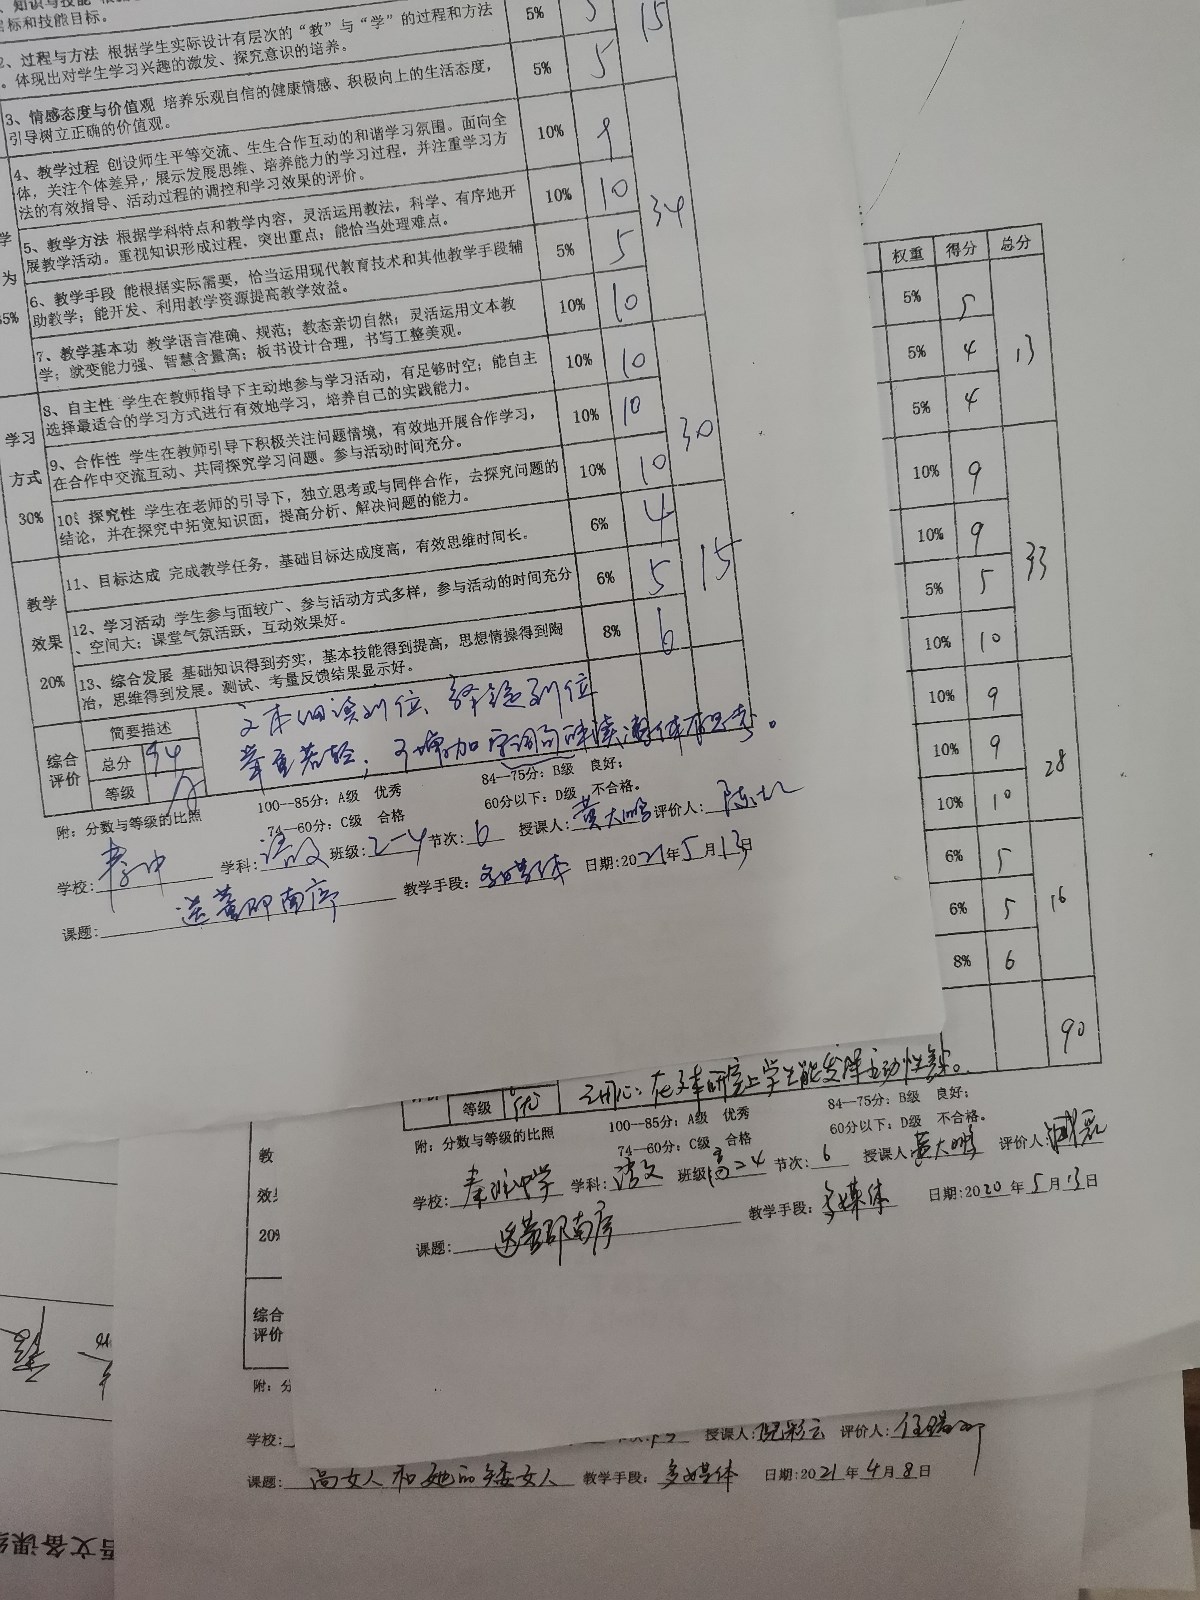 目标和技能目标。
2、过程与方法 根据学生实际设计有层次的“教”与“学”的过程和方法 5% 5 15
。体现出对学生学习兴趣的激发、探究意识的培养。
3、情感态度与价值观 培养乐观自信的健康情感、积极向上的生活态度, 5% 5
引导树立正确的价值观。
4、教学过程 创设师生平等交流、生生合作互动的和谐学习氛围。面向全 10% 9
体,关注个体差异,展示发展思维、培养能力的学习过程,并注重学习方
法的有效指导、活动过程的调控和学习效果的评价。
5、教学方法 根据学科特点和教学内容,灵活运用教法,科学、有序地开 10% 10 34
展教学活动。重视知识形成过程,突出重点;能恰当处理难点。
6、教学手段 能根据实际需要,恰当运用现代教育技术和其他教学手段辅 5% 5
助教学;能开发、利用教学资源提高教学效益。
7、教学基本功 教学语言准确、规范;教态亲切自然;灵活运用文本教 10% 10
学;就变能力强、智慧含量高;板书设计合理,书写工整美观。
8、自主性 学生在教师指导下主动地参与学习活动,有足够时空;能自主 10% 10
选择最适合的学习方式进行有效地学习,培养自己的实践能力。
学习
方式
30%
9、合作性 学生在教师引导下积极关注问题情境,有效地开展合作学习, 10% 10 30
在合作中交流互动、共同探究学习问题。参与活动时间充分。
10、探究性 学生在老师的引导下,独立思考或与同伴合作,去探究问题的 10% 10
结论,并在探究中拓宽知识面,提高分析、解决问题的能力。
教学
效果
20%
11、目标达成 完成教学任务,基础目标达成度高,有效思维时间长。 6% 4
12、学习活动 学生参与面较广、参与活动方式多样,参与活动的时间充分 6% 5 15
、空间大;课堂气氛活跃,互动效果好。
13、综合发展 基础知识得到夯实,基本技能得到提高,思想情操得到陶 8% 6
冶,思维得到发展。测试、考量反馈结果显示好。
综合
评价
简要描述
总分 94
等级 A
文本细读到位、
举重若轻;可增加
附:分数与等级的比照 100--85分:A级 优秀 84—75分:B级 良好;
74—60分:C级 合格 60分以下:D级 不合格。
学校: 学科:语文 班级:2-4 节次:6 授课人:黄大鹏 评价人:
课题:送董邵南序 教学手段:多媒体 日期:2021年5月13日
权重 得分 总分
5% 5
5% 4 13
5% 4
10% 9
10% 9
5% 5 33
10% 10
10% 9
10% 9 28
10% 10
6% 5
6% 5 16
8% 6
90
等级 优
附:分数与等级的比照 100--85分:A级 优秀 84—75分:B级 良好;
74—60分:C级 合格 60分以下:D级 不合格。
学校: 学科:语文 班级:高二4 节次:6 授课人:黄大鹏 评价人:
课题:送董邵南序 教学手段:多媒体 日期:2020年5月13日
教
效
20%
综合
评价
附:分
学校: 授课人:倪彩云 评价人:
课题:高女人和她的矮女人 教学手段:多媒体 日期:2021年4月8日
语文备课